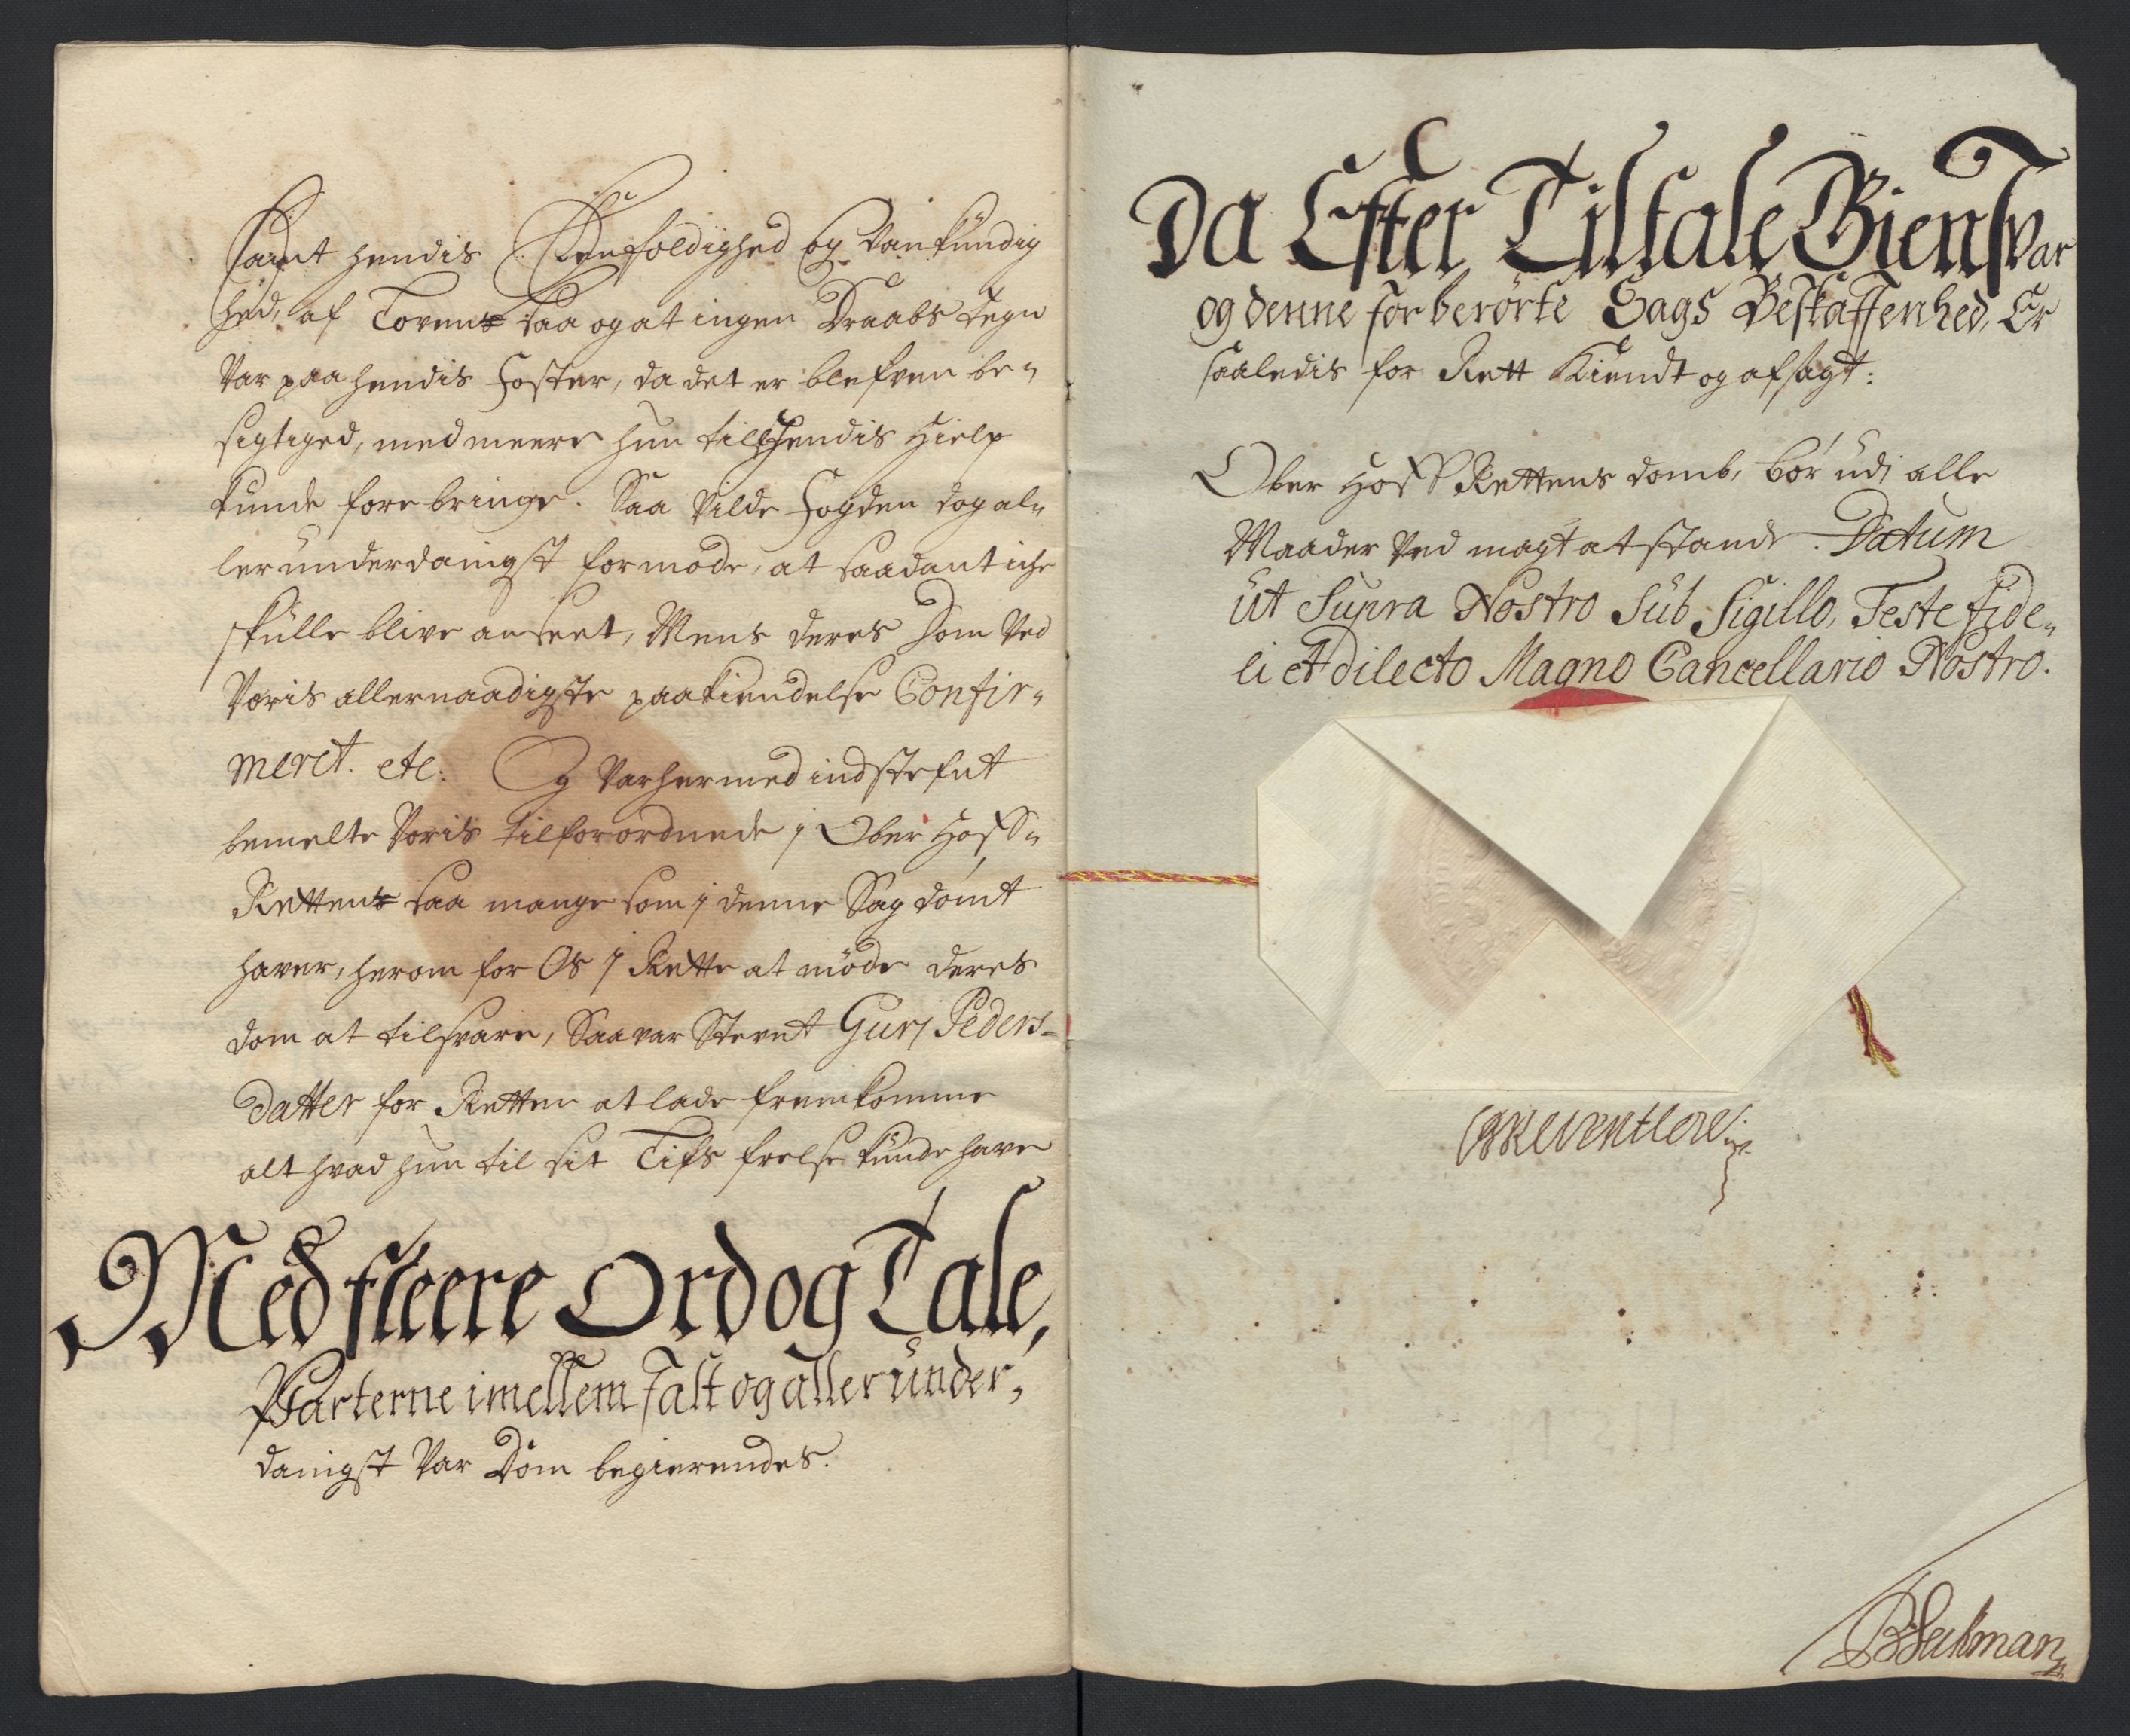 samt hendis Eenfoldighed og Vankundig
hed, af Loven saa og at ingen Draabs tegn
Var paa hendis Foster, da det er blefven be-
sigtiget, med meere hun till hendis Hielp
kunde forebringe. Saa Vilde Fogden dog al-
lerunderdanigst formode, at saadant iche
skulle blive anseet, Mens deres Dom Ved
Voris allernaadigste paakiendelse Confir-
meret. etc. Og Var hermed indstefnt
bemelte Voris tilforordnede i Ober Hoff-
Retten saa mange som i denne Sag dömt
haver, herom for Os i Rette at möde deres
dom at tilsvare, Saa var Stevnt Guri Peders-
datter for Retten at lade fremkomme
alt hvad hun til sit Lifs frelse kunde have
Med fleere Ord og Tale,
Parterne imellem falt og aller under-
danigst Var Dom begierendes.
Da Efter Tiltale Giensvar
og denne forberörte Sags Beskaffenhed, Er
saaledis for Rett Kiendt og afsagt:
Ober Hoff Rettens domb, bör udi alle
Maader Ved magt at stande. Datum
Ut Supra Nostro Sub Sigillo, Teste fide-
li et dilecto Magno Cancellario Nostro.
CReventlow